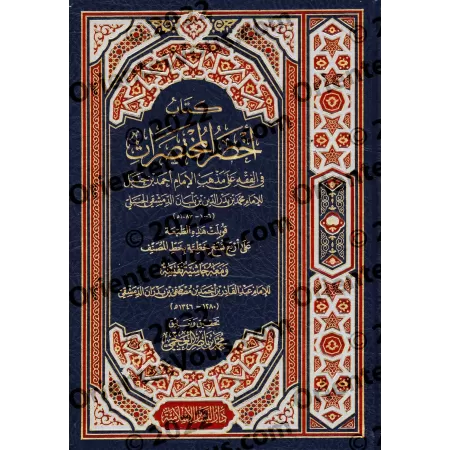 كتاب
أخصر المختصرات
في الفقه على مذهب الإمام أحمد بن حنبل
للإمام محمد بن بدر الدين بن بلبان الدمشقي الحنبلي
(١٠٠٦ - ١٠٨٣ هـ)
قوبلت هذه الطبعة
على أربع نسخ خطية بخط المصنف
ومعه حاشية نفيسة
للإمام عبد القادر بن أحمد بن مصطفى بن بدران الدمشقي
(١٢٨٠ - ١٣٤٦ هـ)
تحقيق وتعليق
محمد بن ناصر العجمي
دار البشائر الإسلامية